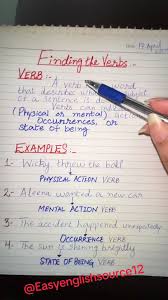 17 April
Finding the Verbs:-
VERB:-
A verb word
that describes what subject
of a sentence is
Verbs can indicate
(Physical or mental) action
Occurrences, or
state of being
EXAMPLES:-
1- Wicky threw the ball
PHYSICAL ACTION VERB
2- Aleena wanted a new car
MENTAL ACTION VERB
3- The accident happened unexpectedly
OCCURRENCE VERB
4- The sun is shining brightly
STATE OF BEING VERB
@Easyenglishsource12